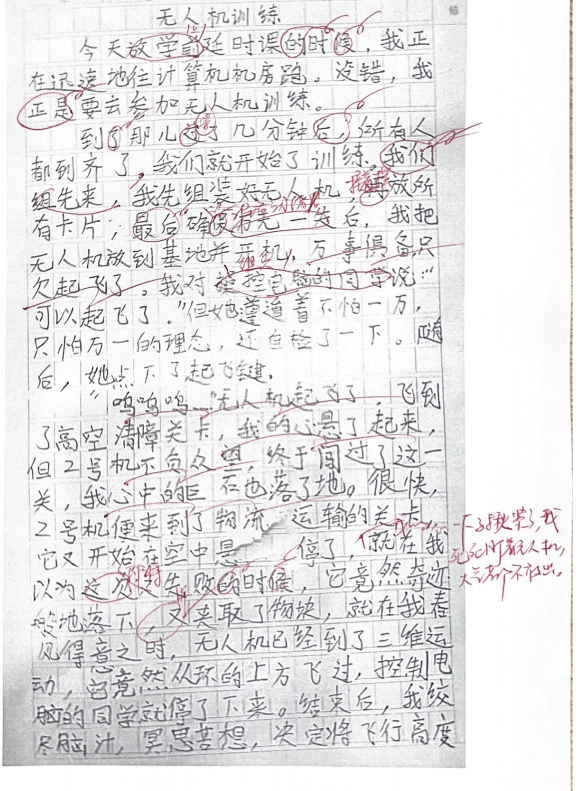 无人机训练
今天放学前延时课的时候，我正
在迅速地往计算机机房跑。没错，我
正是要去参加无人机训练。
到了那儿过了几分钟后，所有人
都到齐了，我们就开始了训练。我们
组先来，我先组装好无人机，再放所
有卡片；最后确保万无一失后，我把
无人机放到基地并开机，万事俱备只
欠起飞了。我对操控电脑的同学说：“
可以起飞了。”但她遵道着不怕一万，
只怕万一的理念，还自检了一下。随
后，她点下了起飞键。
“呜呜呜……”无人机起飞了，飞到
了高空清障关卡，我的心悬了起来，
但2号机不负众望，终于闯过了这一
关，我心中的巨石也落了地。很快，
2号机便来到了物流运输的关卡，
它又开始在空中悬停了，就在我
一下子紧张了，我
死死盯着无人机，
大气都不敢出。
以为这次又失败的时候，它竟然奇迹
般地落下，又夹取了物块，就在我春
风得意之时，无人机已经到了三维运
动，它竟然从环的上方飞过，控制电
脑的同学就停了下来。结束后，我绞
尽脑汁，冥思苦想，决定将飞行高度